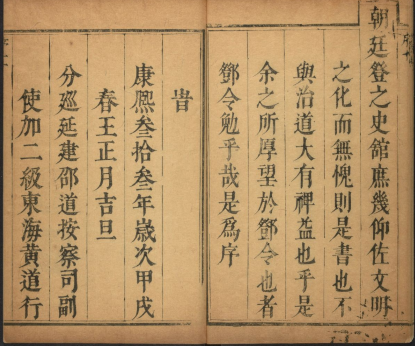 朝廷登之史館庶幾仰佐文明
之化而無愧則是書也不
與治道大有裨益也乎是
余之所厚望於鄧令也者
鄧令勉乎哉是爲序
旹
康熈叁拾叁年歲次甲戌
春王正月吉旦
分廵延建邵道按察司副
使加二級東海黄道行